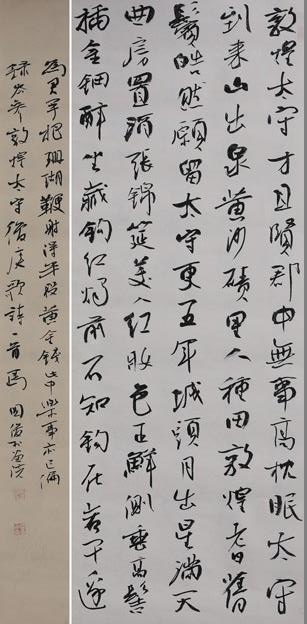 敦煌太守才且賢郡中無事高枕眠太守
到來山出泉黃沙磧里人種田敦煌耆舊
鬢皓然願留太守更五年城頭月出星滿天
曲房置酒張錦筵美人紅妝色正鮮側垂高髻
插金鈿醉坐藏鉤紅燭前不知鉤在若个邊
為君手把珊瑚鞭射得半段黃金錢此中樂事亦已偏
錄岑參敦煌太守後庭歌詩一首